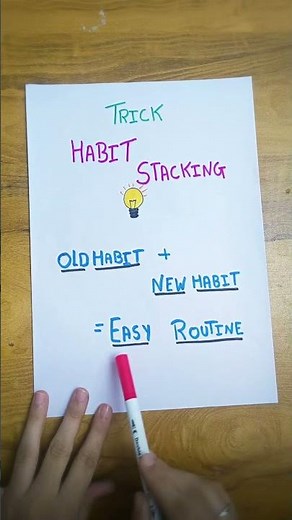 TRICK
HABIT
STACKING
OLD HABIT +
NEW HABIT
= EASY ROUTINE